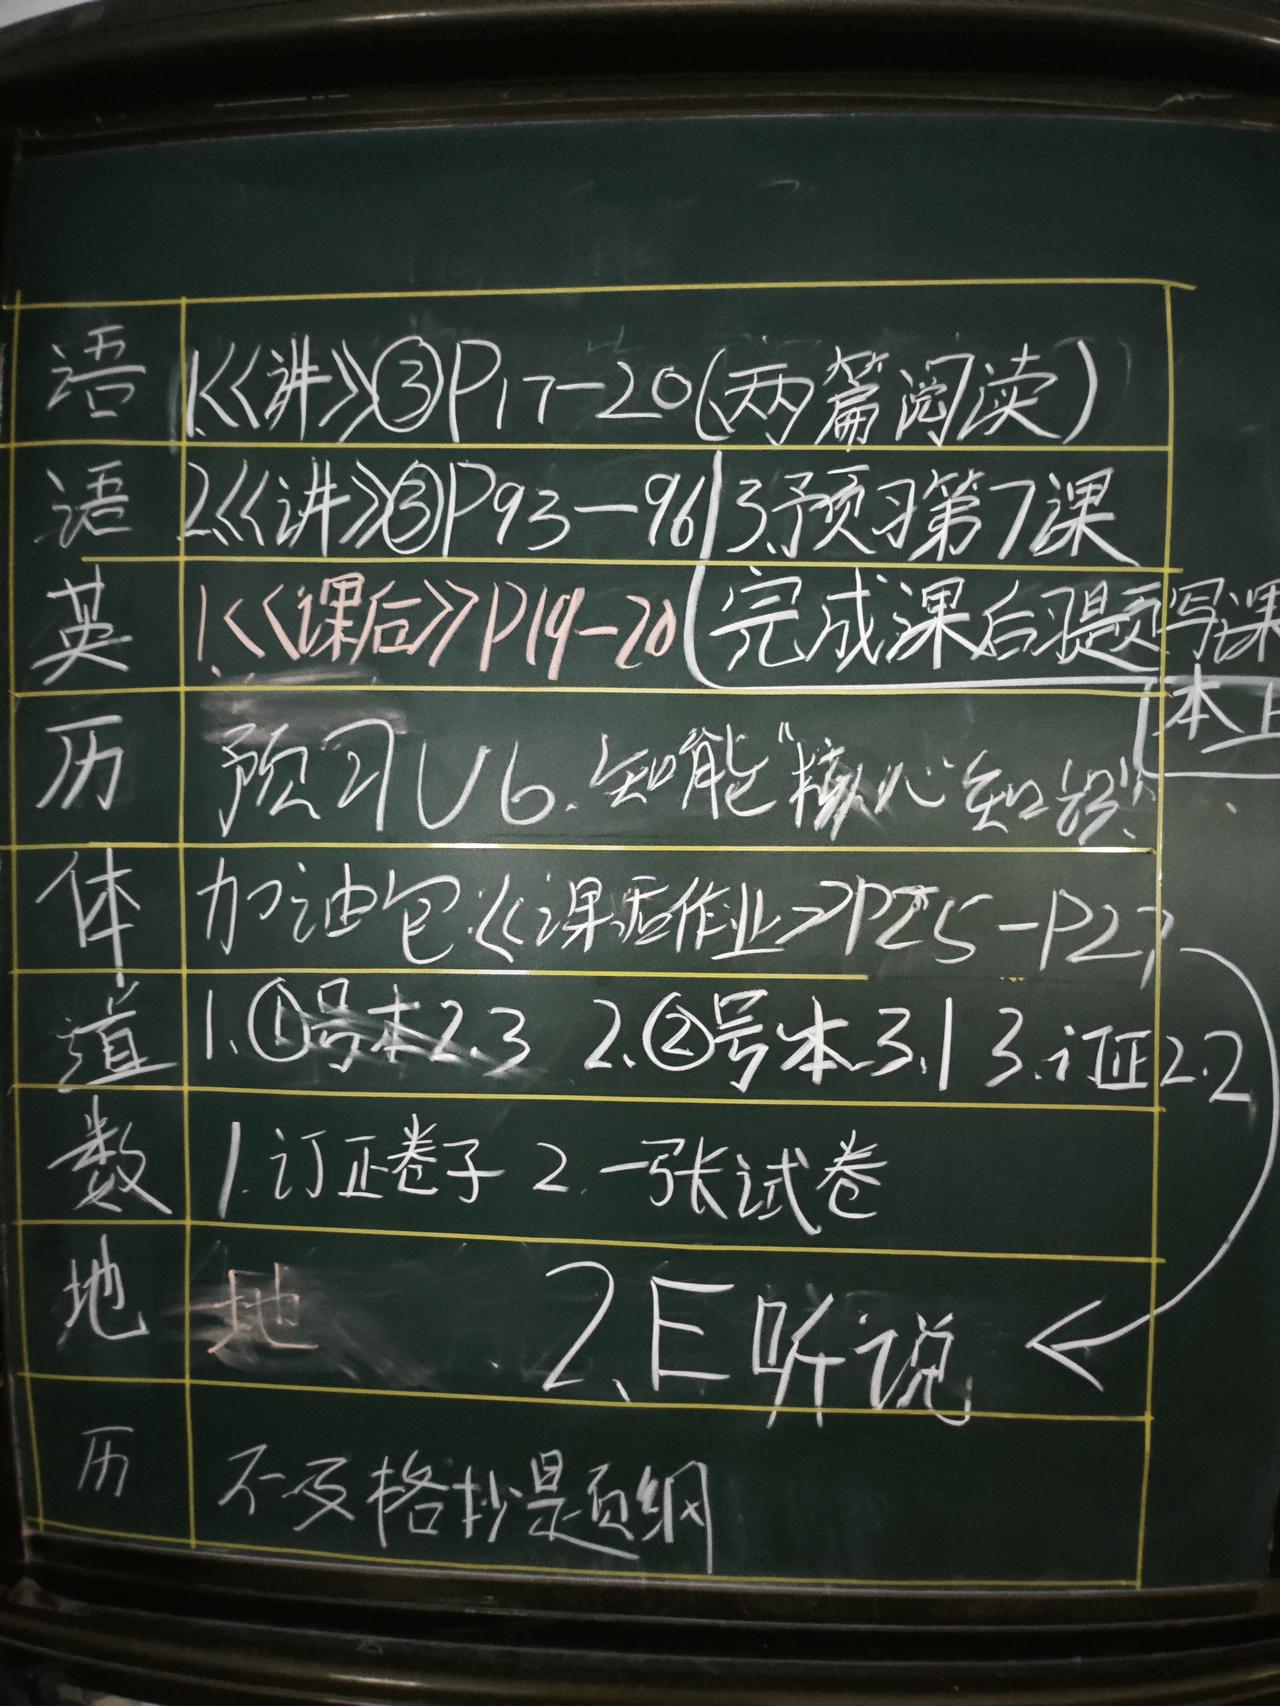 语 1.《讲》③P17-20(两篇阅读)
语 2.《讲》③P93-96 3.预习第7课
英 1.《课后》P19-20 完成课后习题写课
本上
历 预习U6.知能"核心知识"
体 加油包《课后作业》P25-P27
道 1.①号本2.3 2.②号本3.1 3.订正2.2
数 1.订正卷子 2.一张试卷
地 地 2.E听说
历 不及格抄提纲